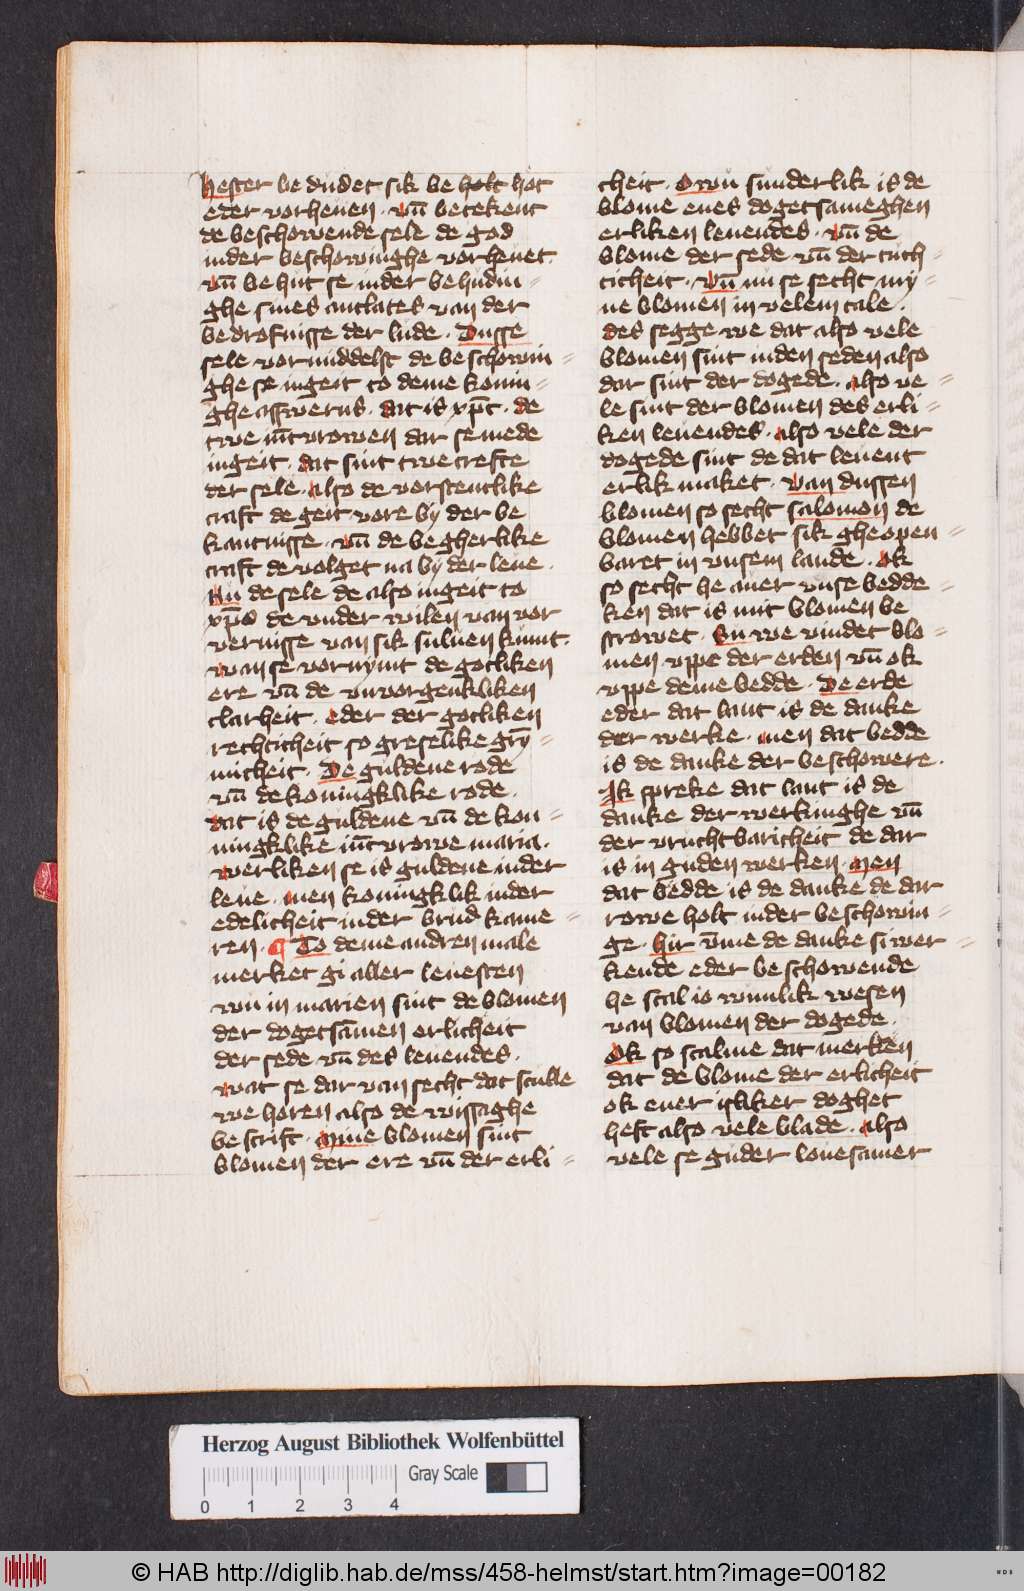 Hester be dudet sik be holt hot
eder vorheuen · vn̄ betekent
de beschowende sele de god
inder beschowinghe vorheuet
vn̄ be hut se inder behudin=
ghe sines antlates van der
bedrofnisse der lude · Dusse
sele vormiddelst de be schowin=
ghe se ingeit to deme konin=
ghe asswerus · dat is xp̄c · de
twe iūcvrowen dar se mede
ingeit · dat sint twe crefte
der sele · also de vorstentlike
craft de geit vore by der be
kantnisse · vn̄ de be gherlike
craft de volget na by der leue ·
Nu de sele de also ingeit to
xp̄o de vnder wilen van vor
vernisse van sik suluen kumt ·
wan se vornymt de gotliken
ere vn̄ de vnvorgenkliken
clarheit · eder der gotliken
rechticheit so greselike gry̅=
micheit · De guldene rode
vn̄ de koningklike rode ·
dat is de guldene vn̄ de kon=
ningklike iūcvrowe maria ·
werliken se is guldene inder
leue · men koningklik inder
edelicheit inder brud kame=
ren · ¶ To deme andren male
merket gi aller leuesten
wu in marien sint de blomen
der dogetsamen erlicheit
der sede vn̄ des leuendes ·
wat se dar van secht dat sculle
we horen also de wissaghe
be scrift · Mine blomen sint
blomen der ere vn̄ der erli=
cheit · Owu sunderlik is de
blome enes dogetsameghen
erliken leuendes · vn̄ de
blome der sede vn̄ der tuch=
ticheit · Vn̄ nu se secht my=
ne blomen in velem tale ·
des segge we dat also vele
blomen sint inden seden also
dar sint der dogede · also ve=
le sint der blomen des erli=
ken leuendes · also vele der
dogede sint de dat leuent
erlik maket · van dussen
blomen so secht salomon de
blomen hebbet sik gheopen=
baret in vnsem lande · Ok
so secht he auer vnse bedde=
ken dat is mit blomen be
strowet · Su we vindet blo=
men vppe der erden vn̄ ok
vppe deme bedde · De erde
eder dat lant is de danke
der werke · men dat bedde
is de danke der beschowere ·
Ik spreke dat lant is de
danke der werkinghe vn̄
der vruchtbaricheit de dar
is in guden werken · Men
dat bedde is de danke de dar
rowe holt inder beschowin=
ge · hir v̄me de danke si wer=
kende eder be schowende
he scal io wunlik wesen
van blomen der dogede ·
Ok so scalme dat merken
dat de blome der erlicheit
ok ener isliker doghet
heft also vele blade · also
vele se guder louesamer
Herzog August Bibliothek Wolfenbüttel
Gray Scale
0 1 2 3 4
© HAB http://diglib.hab.de/mss/458-helmst/start.htm?image=00182